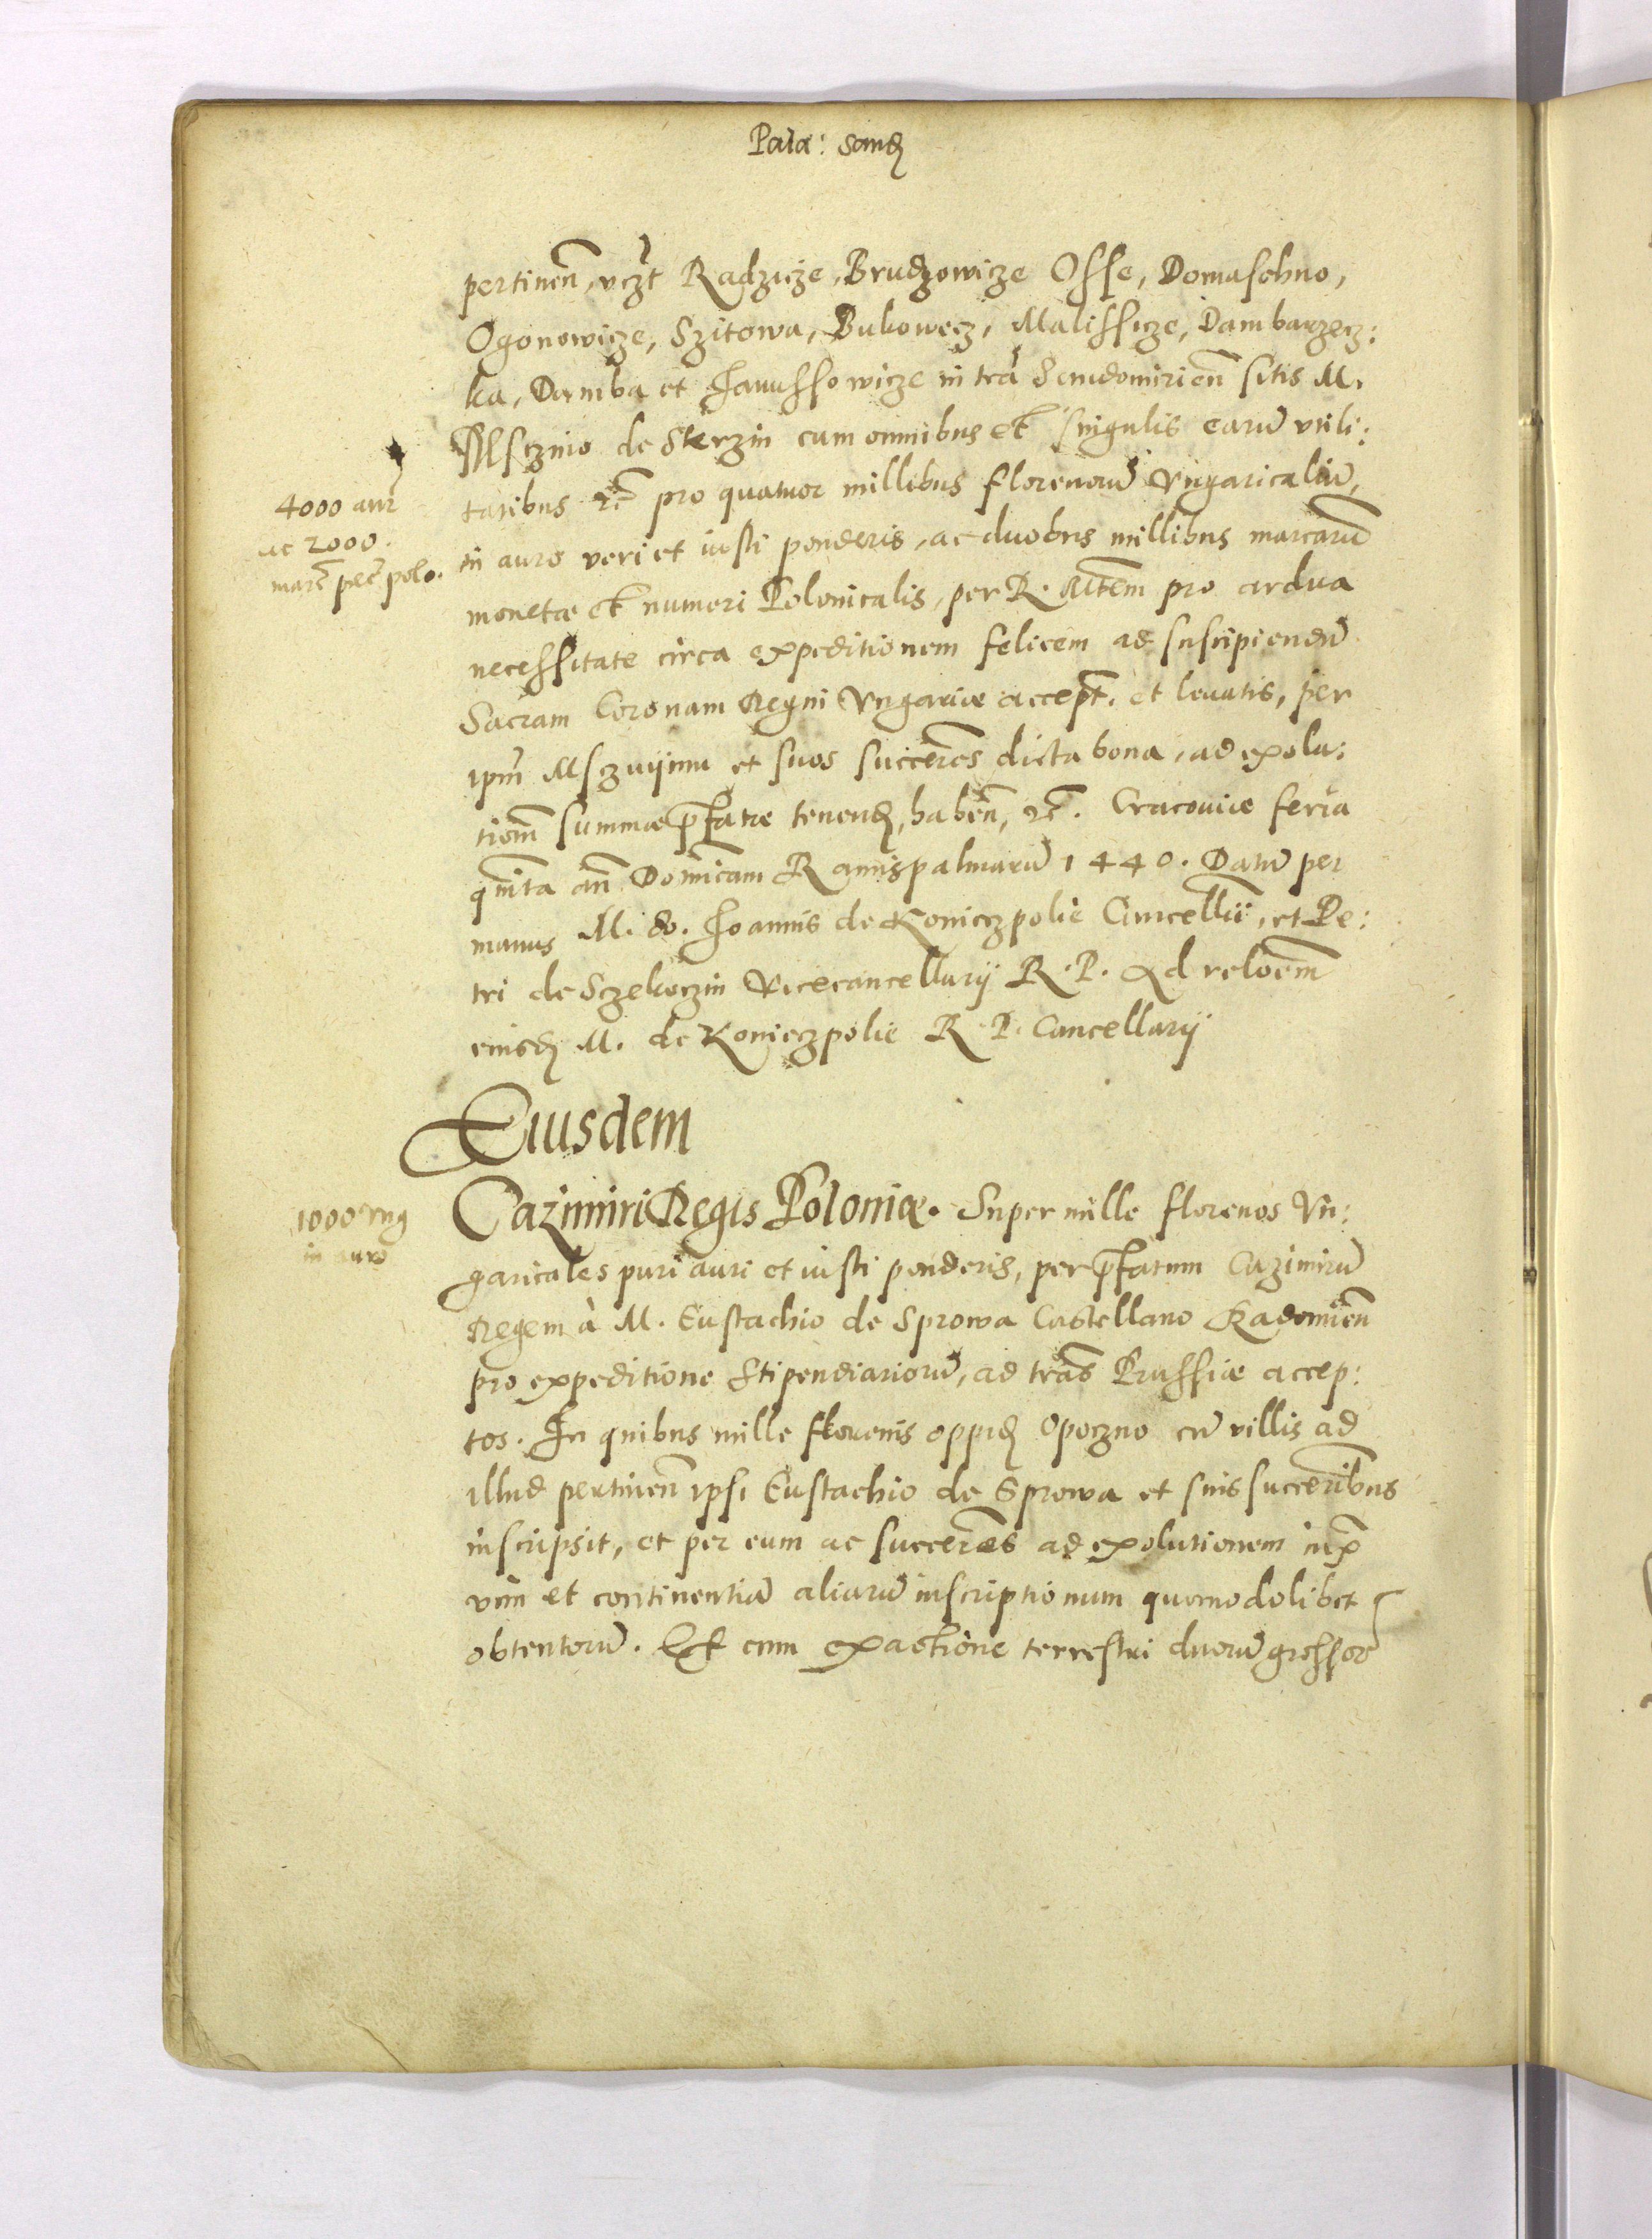 Pala: Sand
pertinen, vczt Radzicze, Brudzowicze Osse, Domaschno,
Ogonowicze, Szitowa, Bukowecz, Malissicze, Dambarzecz:
ka, Damba et Janussowicze in tra Sendomirien sitis M.
Msczuio de Skrzin cum omnibus et singulis earu vtili:
4000 aur
tatibus etc pro quatuor millibus florenoru Vngaricaliu,
ac 2000.
in auro veri et iusti ponderis, ac duobus millibus marcaru
marc pec polo.
monetæ et numeri Polonicalis, per R. Mtem pro ardua
necessitate circa expeditionem felicem ad suscipiendu
Sacram Coronam Regni Vngariæ accept. et leuatis, per
ipm Msczuijum et suos succeres dicta bona, ad exolu:
tiom summæ pfatæ tenend, haben, etc. Cracouiæ feria
quinta an Domicam Ramispalmaru 1440. Datu per
manus M. do. Joannis de Koniczpolie Cancellii, et Pe:
tri de Sczekoczin Vicecancellarij R. P. Ad reloem
eiusd M. de Konieczpolie R. P. Cancellarij
Eiusdem
Cazimiri Regis Poloniæ. Super mille florenos Vn:
1000 vng
in auro
garicales puri auri et iusti ponderis, per pfatum Cazimiru
Regem à M. Eustachio de Sprowa Castellano Radomien
pro expeditione Stipendiarioru, ad tras Prussiæ accep:
tos. In quibus mille florenis oppid Opoczno cu villis ad
illud pertinen ipsi Eustachio de Sprowa et suis succeribus
inscripsit, et per eum ac succeres ad exolutionem iux
vim et continentiam aliaru inscriptionum quomodolibet
obtentoru. Et cum exactione terrestri duoru grossor